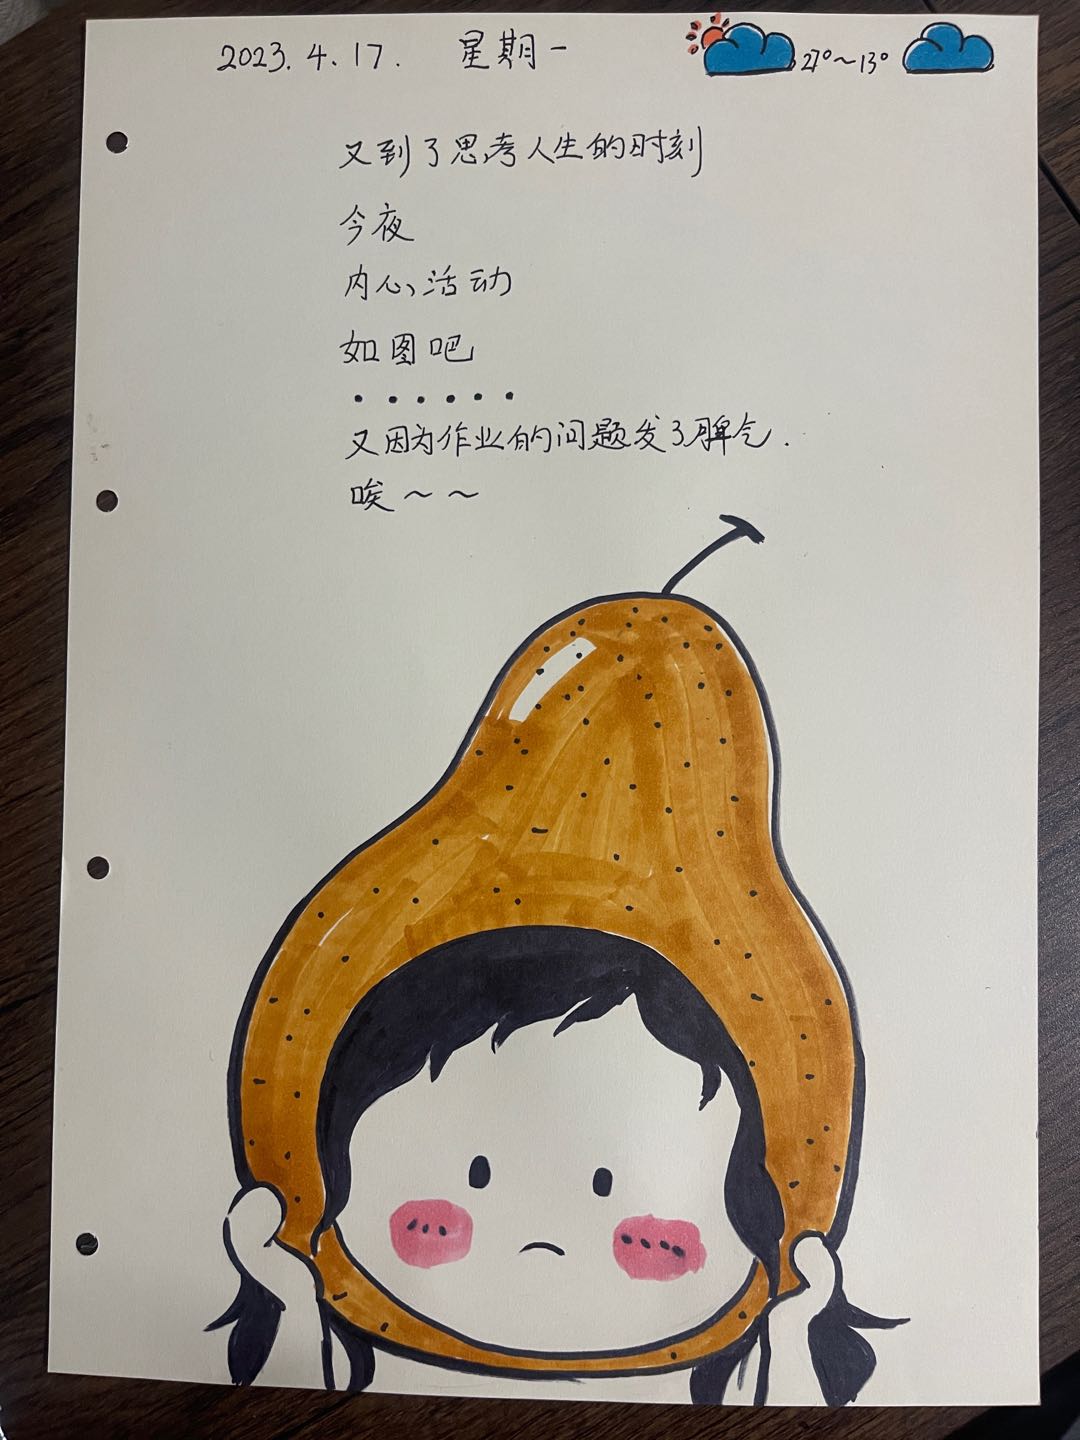 2023.4.17. 星期一 27°~13°
又到了思考人生的时刻
今夜
内心活动
如图吧
······
又因为作业的问题发了脾气.
唉~~